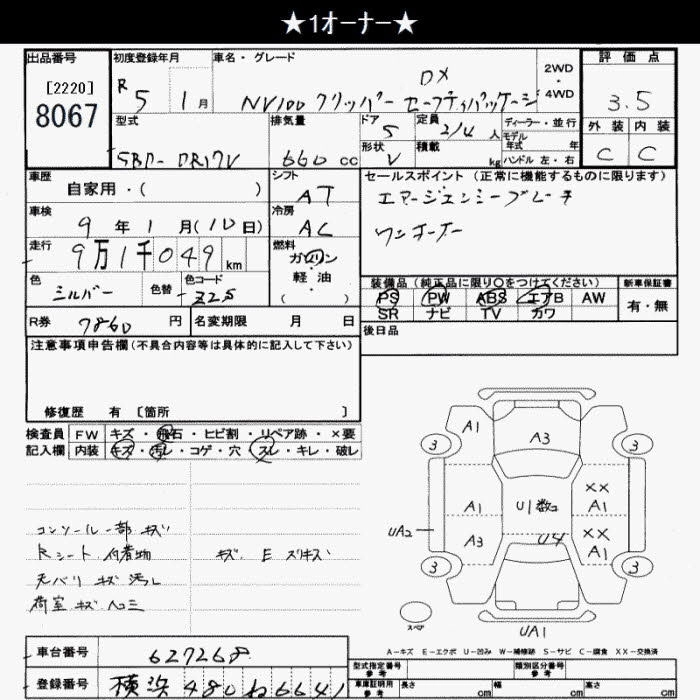 ★1オーナー★
出品番号
[2220]
8067
初度登録年月
R 5 1月
車名・グレード
DX
NV100 クリッパー セーフティパッケージ
2WD
・
4WD
評価点
3.5
外装 内装
C C
型式
5BD-DR17V
排気量
660 cc
ドア
5
形状
V
定員
2/4 人
積載
kg
ディーラー・並行
モデル
年式 年
ハンドル 左・右
車歴
自家用・( )
車検
9年1月(10日)
走行
9万1千049km
色
シルバー
色替
色コード
Z2S
シフト
AT
冷房
AC
燃料
ガソリン
・
軽油
( )
セールスポイント (正常に機能するものに限ります)
エマージェンシーブレーキ
ワンオーナー
装備品 (純正品に限り〇をつけてください)
PS PW ABS エアB AW
SR ナビ TV カワ
新車保証書
有・無
後日品
R券 7860 円
名変期限 月 日
注意事項申告欄(不具合内容等は具体的に記入して下さい)
修復歴 有 [箇所 ]
検査員 FW キズ・飛石・ヒビ割・リペア跡・×要
記入欄 内装 キズ・汚レ・コゲ・穴・スレ・キレ・破レ
コンソール一部キズ
Rシート 付着物 キズ E ズリキズ
天バリ キズ 汚レ
荷室 キズ ヘコミ
A1
A3
3 3
A1 U1数コ XX
A1
UA2
A3 U4 XX
A1
3 3
スペア
UA1
A-キズ E-エクボ U-凹み W-補修跡 S-サビ C-腐食 XX-交換済
車台番号 627268
登録番号 横浜 480 ね 6641
型式指定番号
参考
類別区分番号
参考
車庫証明用
参考
長さ cm
幅 cm
高さ cm